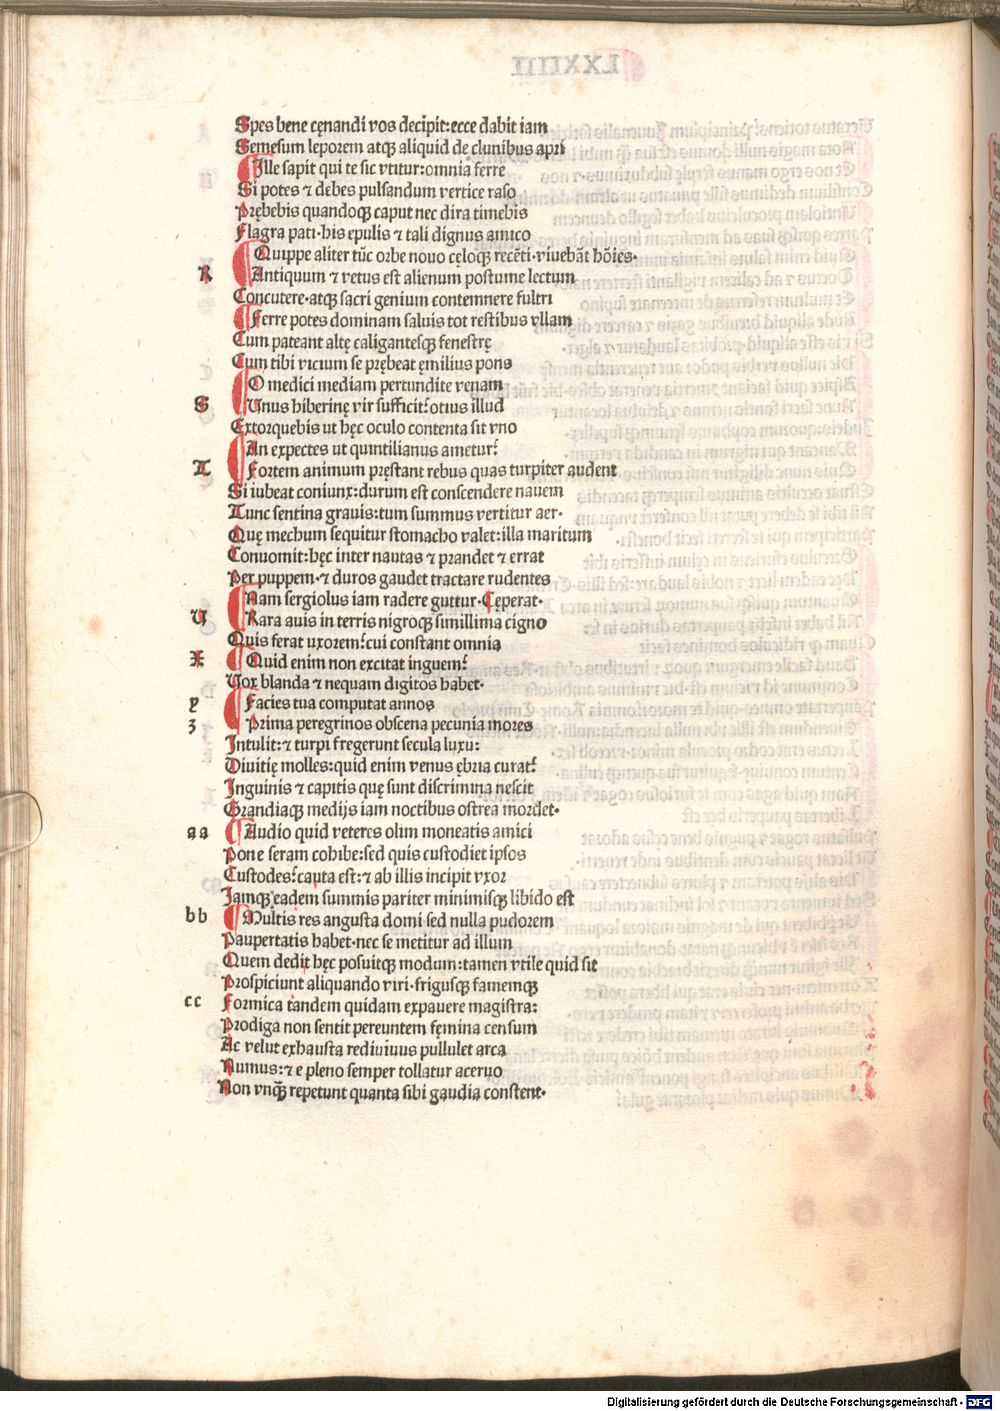 Spes bene cęnandi vos decipit: ecce dabit iam
Semesum leporem atqꝫ aliquid de clunibus apri
Ille sapit qui te sic vtitur: omnia ferre
Si potes ⁊ debes pulsandum vertice raso
Prębebis quandoqꝫ caput nec dira timebis
Flagra pati· his epulis ⁊ tali dignus amico
Quippe aliter tūc orbe nouo cęloqꝫ recēti· viuebāt hoīes·
R Antiquum ⁊ vetus est alienum postume lectum
Concutere· atqꝫ sacri genium contemnere fultri
Ferre potes dominam saluis tot restibus vllam
Cum pateant altę caligantesqꝫ fenestrę
Cum tibi vicium se prębeat ęmilius pons
O medici mediam pertundite venam
S Unus hiberinę vir sufficit? otius illud
Extorquebis ut hęc oculo contenta sit vno
An expectes ut quintilianus ametur?
T Fortem animum pręstant rebus quas turpiter audent
Si iubeat coniunx: durum est conscendere nauem
Tunc sentina grauis: tum summus vertitur aer·
Quę mechum sequitur stomacho valet: illa maritum
Conuomit: hęc inter nautas ⁊ prandet ⁊ errat
Per puppem· ⁊ duros gaudet tractare rudentes
Nam sergiolus iam radere guttur· Cęperat·
U Rara auis in terris nigroqꝫ simillima cigno
Quis ferat uxorem? cui constant omnia
X Quid enim non excitat inguem?
Vox blanda ⁊ nequam digitos habet·
y Facies tua computat annos
z Prima peregrinos obscena pecunia mores
Intulit: ⁊ turpi fregerunt secula luxu:
Diuitię molles: quid enim venus ębria curat?
Inguinis ⁊ capitis quę sunt discrimina nescit
Grandiaqꝫ medijs iam noctibus ostrea mordet·
aa Audio quid veteres olim moneatis amici
Pone seram cohibe: sed quis custodiet ipsos
Custodes? cauta est: ⁊ ab illis incipit vxor
Iamqꝫ eadem summis pariter minimisqꝫ libido est
bb Multis res angusta domi sed nulla pudorem
Paupertatis habet· nec se metitur ad illum
Quem dedit hęc posuitqꝫ modum: tamen vtile quid sit
Prospiciunt aliquando viri· frigusqꝫ famemqꝫ
cc Formica tandem quidam expauere magistra:
Prodiga non sentit pereuntem fęmina censum
Ac velut exhausta rediuiuus pullulet arca
Numus: ⁊ e pleno semper tollatur aceruo
Non vnqꝫ̄ repetunt quanta sibi gaudia constent·
Digitalisierung gefördert durch die Deutsche Forschungsgemeinschaft - DFG